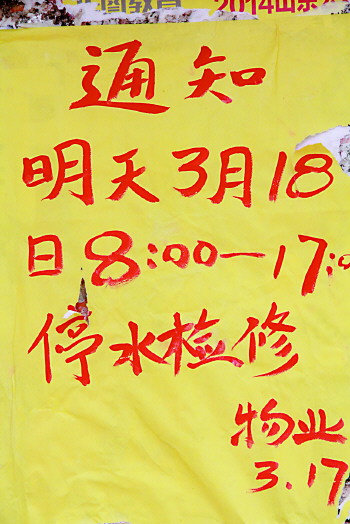 2014山东
通知
明天3月18
日8:00-17:0
停水检修
物业
3.17